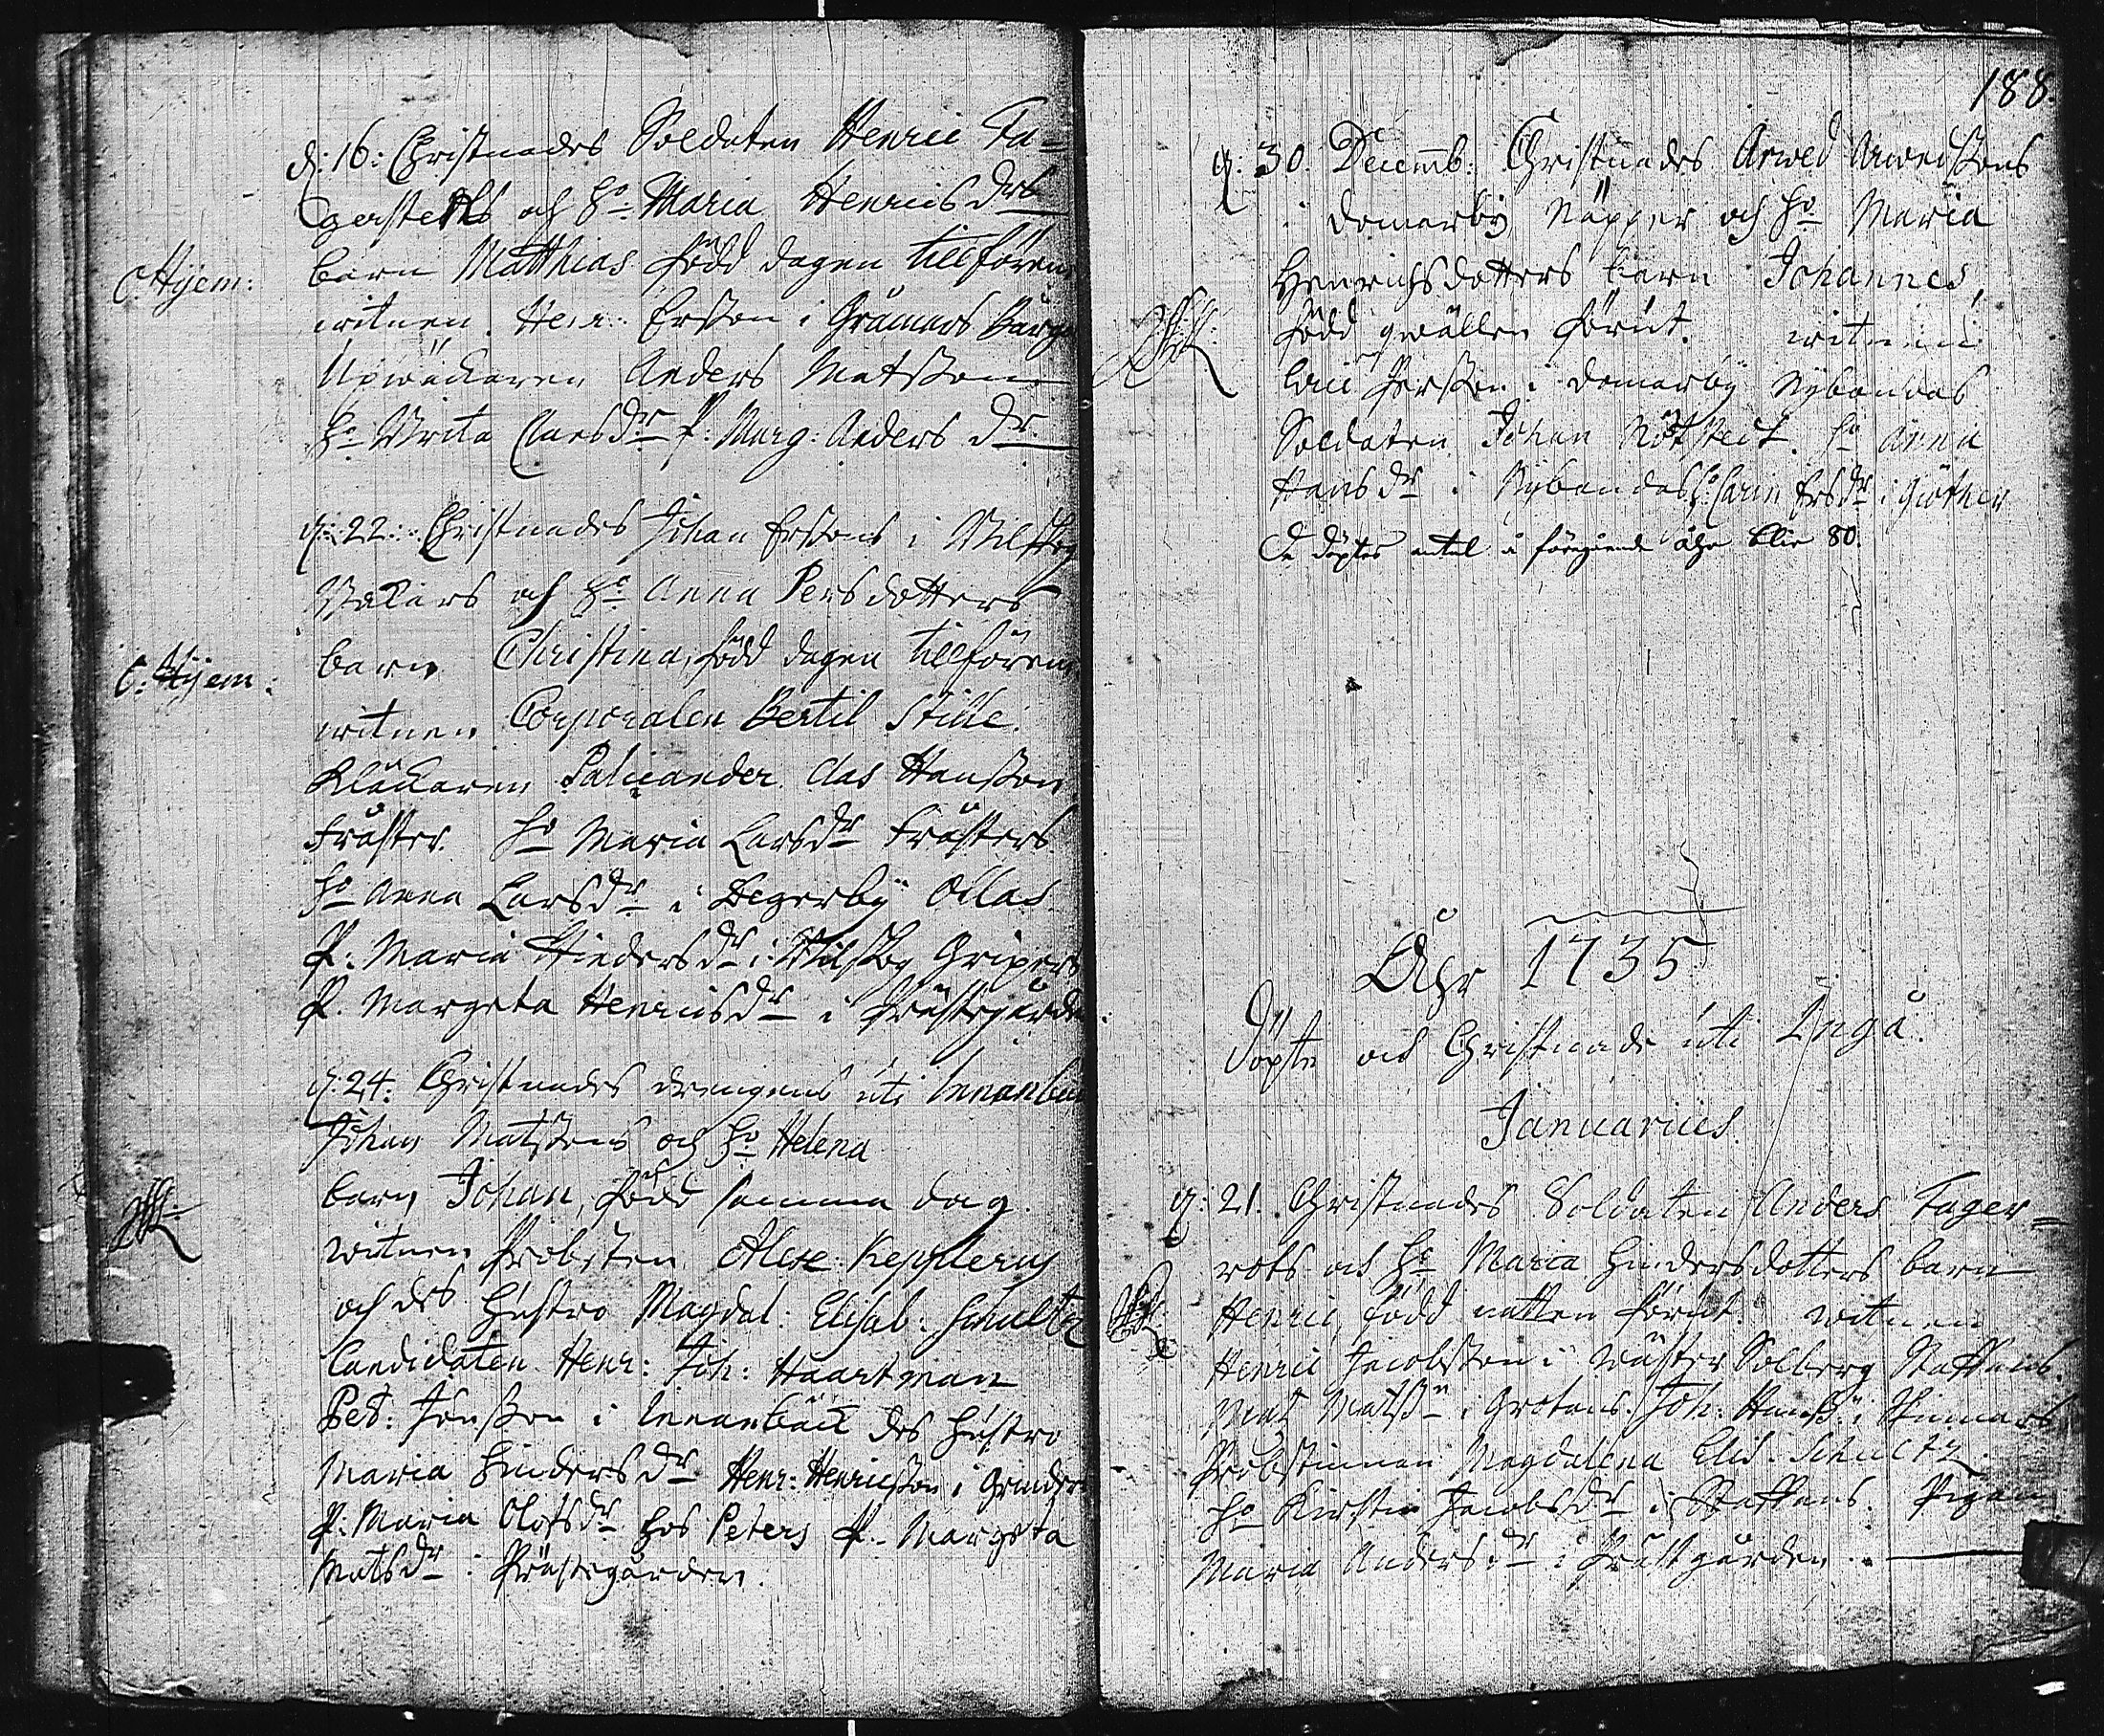 d: 16: Christnades Soldaten Henric Fa=
gerstedts och h:o Maria Henricsdrs
C. Hijem:
barn Matthias född dagen tillförene
witnen. Henr: Ersson i Gråmars
Upwäckaren Anders Matsson
h:o Brita Clasdr P: Marg: Andersdr
d: 22: Christnades Johan Erssons i
och h:o Anna Persdotters
C: Hijem:
barn Christina, född dagen tillförene
witnen Corporalen Bertil Stille.
Klåckaren Palicander Clas Hansson
Fräster. h:o Maria Larsdr Frästers
h:o Anna Larsdr i Degerby Ollas
P: Maria Hindersdr i Gripers
P. Margeta Henricsdr i Prästegården
d. 24. Christnades drengens uti Innanbäck
Johan Matssons och h:o Helena
barn Johan, född samma dag.
witnen Probsten Alexr: Kepplerus
och des hustro Magdal: Elisab: Schultz
Candidaten Henr: Joh: Haartman
Pet: Jönsson i Innanbäck des hustro
Maria Hindersdr Henr: Henricsson i Grinders
P: Maria Olofsdr hos Peters P. Margeta
Matsdr i Prästegården.
188.
d: 30. Decemb: Christnades Arwed Arwedssons
i Domarby Näpper och h:o Maria
Henrichsdotters barn Johannes,
född qwällen förut. witnen:
Eric Persson i Domarby Nybondas
Soldaten Johan Nötstedt. h:o Anna
Hansdr i Nybondas h:o Carin Ersdr i
De döptes antal i föregående åhr blir 80.
Åhr 1735
Döpte och Christnade uti Ingå.
Januarius.
d: 21. Christnades Soldaten Anders Fager=
rots och h:o Maria Hindersdotters barn
Henric, född natten förut. witnen
Henric Jacobsson i Wäster Solberg Staffans.
Mat Matss:n i Grotens. Joh: Hanss: i
Probstinnan Magdalena Elis. Schultz.
h:o Kirstin Jacobsdr i Staffans. Pigan
Maria Andersdr i Prästgården.